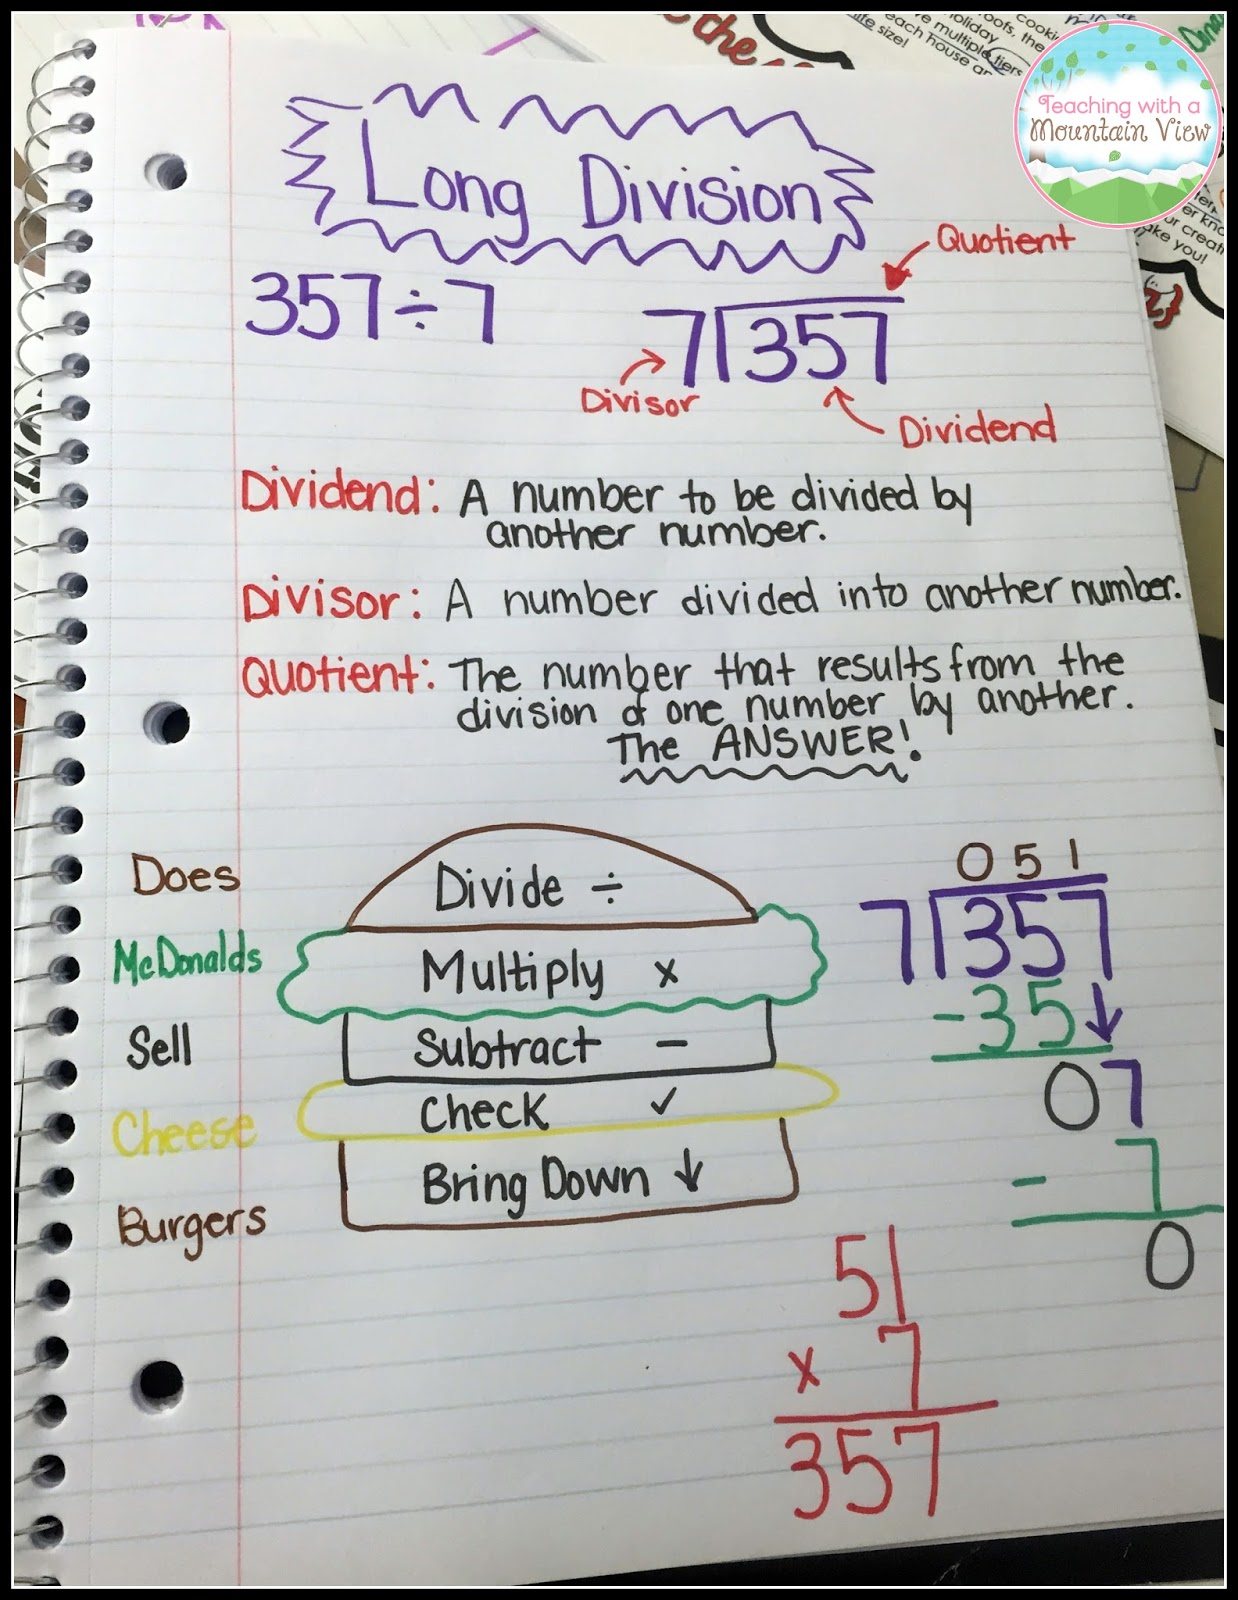 the
life size!
each house an
multiple tiers
holiday
roofs, the
Teaching with a
Mountain View
er kno
ur creati
ake you!
Long Division
357÷7
Quotient
7 357
Divisor
Dividend
Dividend: A number to be divided by
another number.
Divisor: A number divided into another number.
Quotient: The number that results from the
division of one number by another.
The ANSWER!
Does
Divide ÷
McDonalds
Multiply x
Sell
Subtract −
Cheese
Check ✓
Burgers
Bring Down ↓
051
7 357
-35↓
07
- 7
0
51
x 7
357